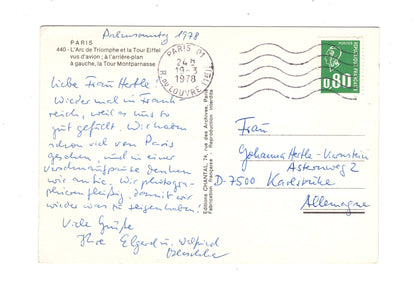 Palmsonntag 1978
PARIS
440 - L'Arc de Triomphe et la Tour Eiffel
vus d'avion ; à l'arrière-plan
à gauche, la Tour Montparnasse
PARIS 01
24 H
19-3
1978
R. DU LOUVRE (1er)
0,80
Liebe Frau Hertle!
Wieder mal in Frank
reich, weil es uns so
gut gefällt. Wir haben
schon viel von Paris
gesehen, und in einer
Verschnaufpause denken
wir an Sie. Wir photogra-
phieren fleißig, damit wir
wieder was zu zeigen haben!
Viele Grüße
Ihre Elgard u. Wilfried
Editions CHANTAL, 74, rue des Archives, Paris
Fabrication française - Reproduction interdite
Frau
Johanna Hertle-
Asternweg 2
D-7500 Karlsruhe
Allemagne